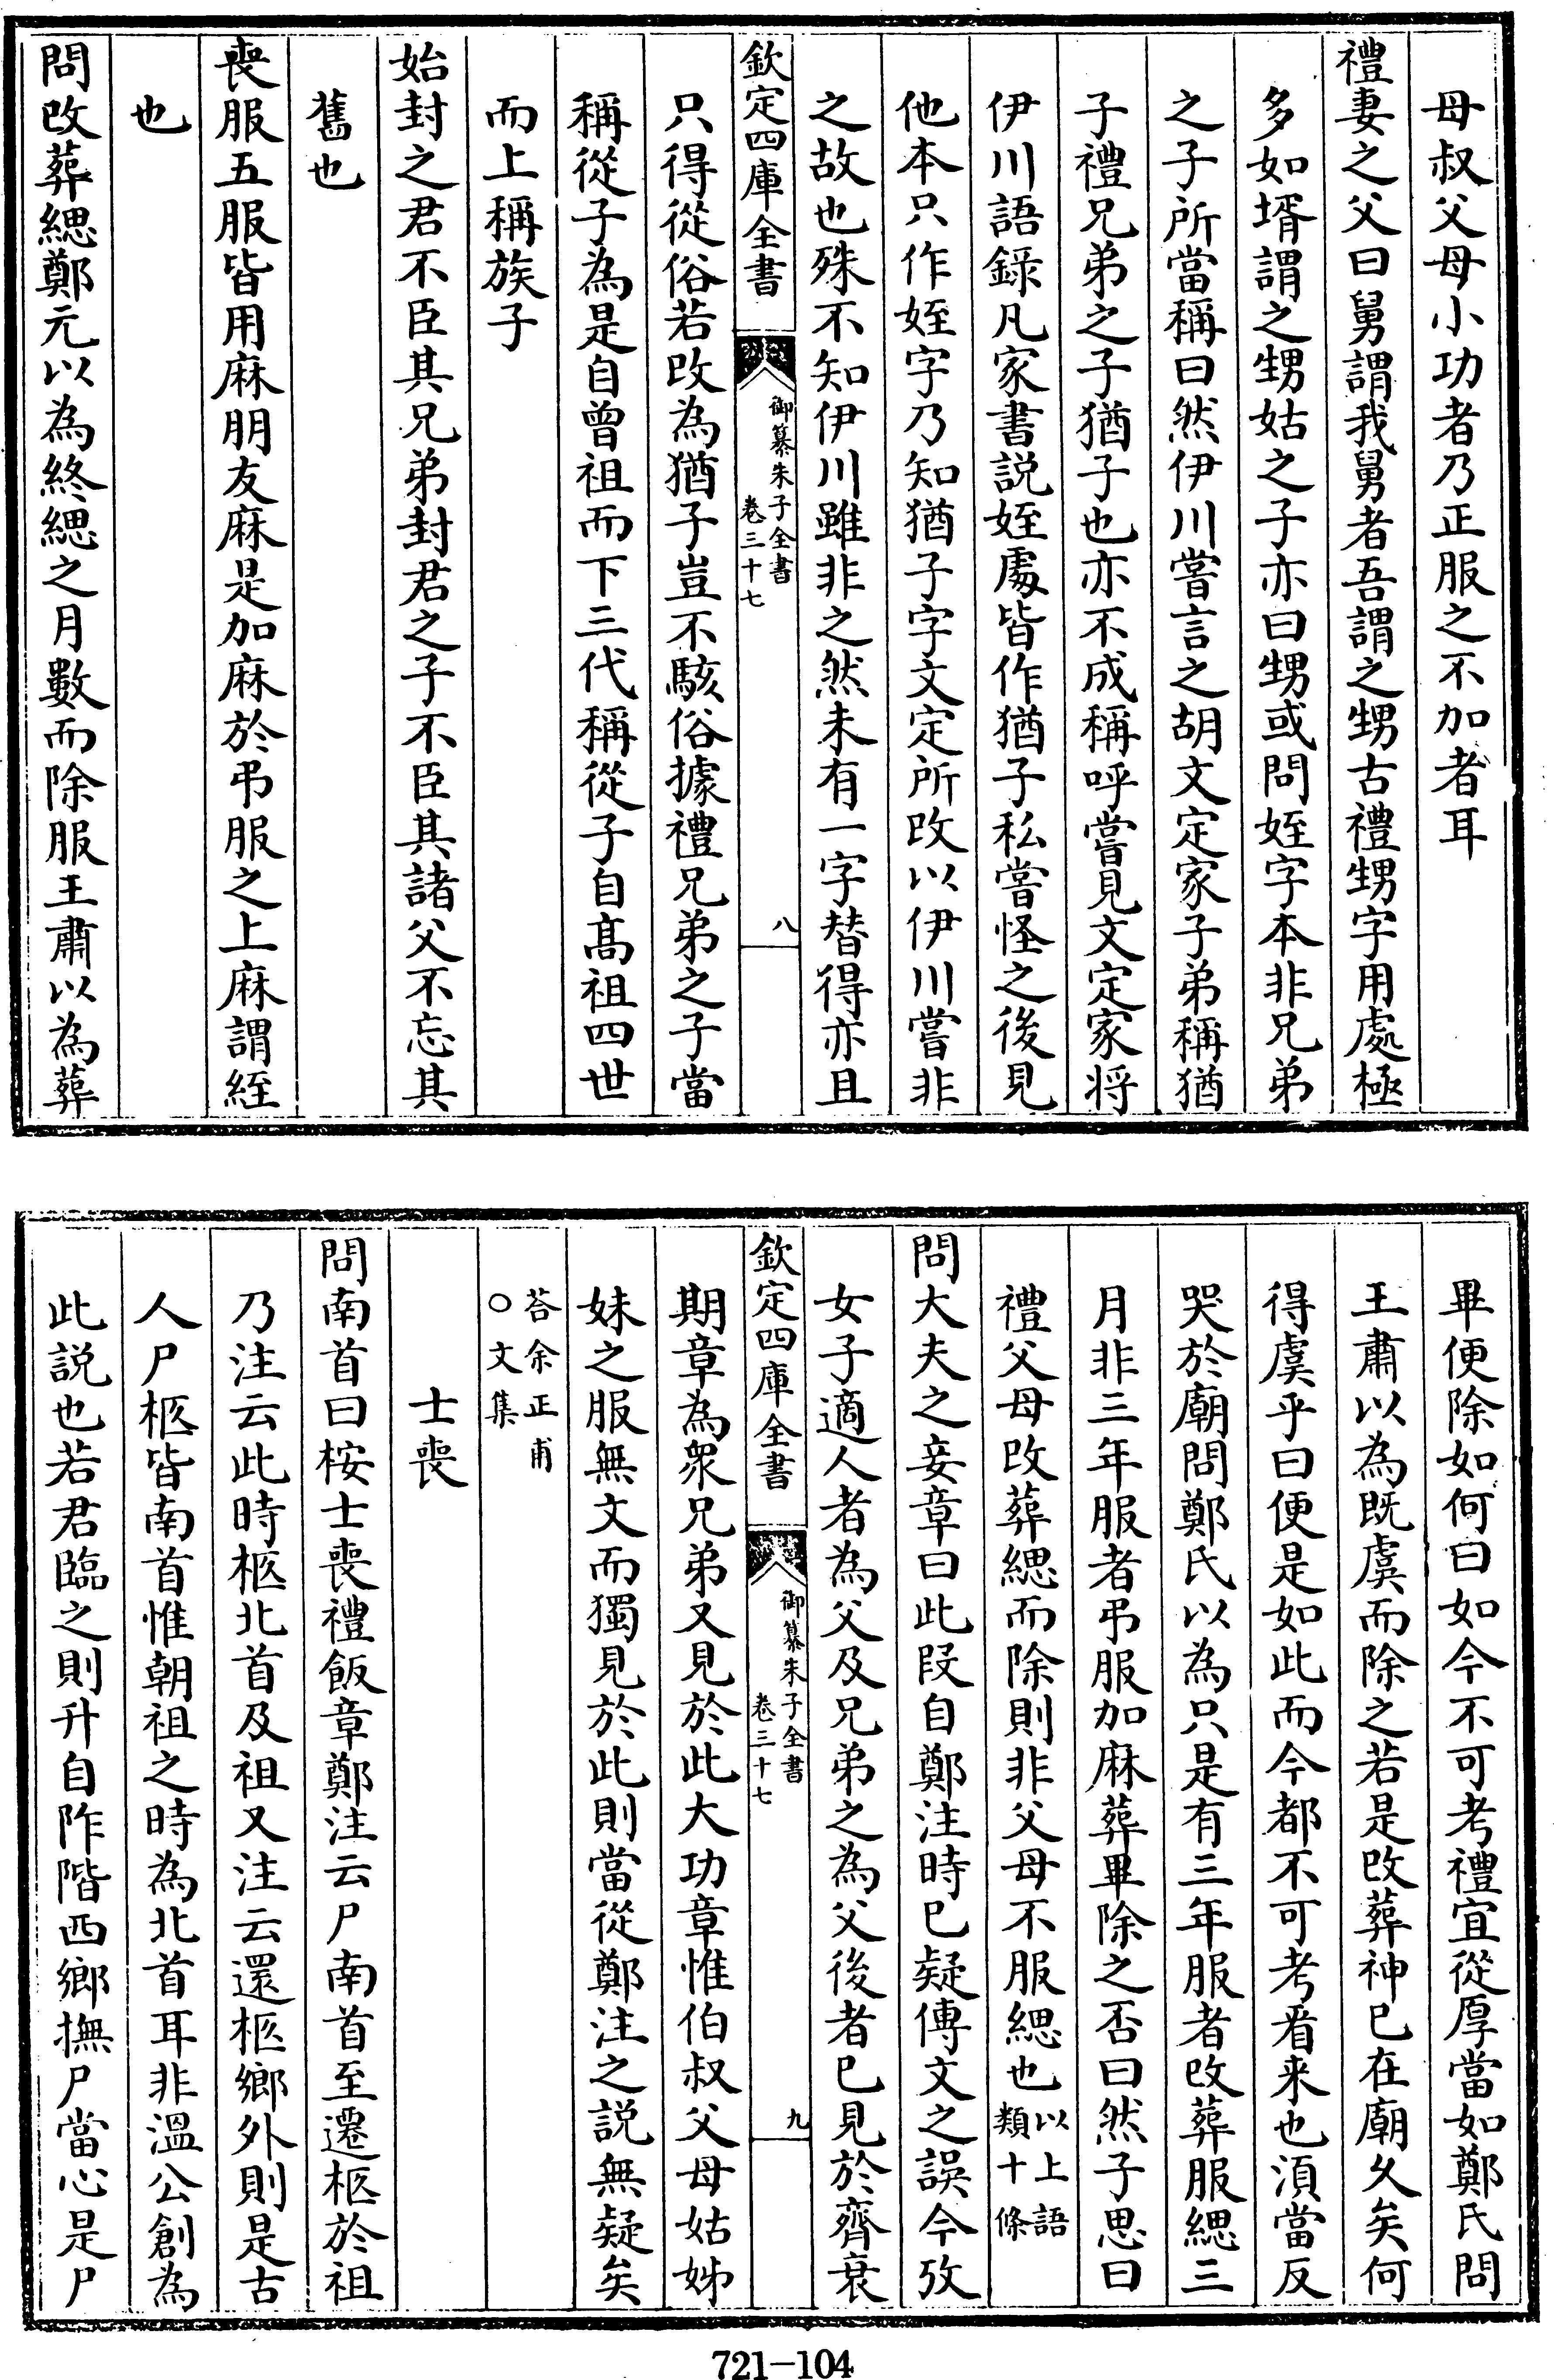 母叔父母小功者乃正服之不加者耳
禮妻之父曰舅謂我舅者吾謂之甥古禮甥字用處極
多如壻謂之甥姑之子亦曰甥或問姪字本非兄弟
之子所當稱曰然伊川嘗言之胡文定家子弟稱猶
子禮兄弟之子猶子也亦不成稱呼嘗見文定家將
伊川語錄凡家書説姪處皆作猶子私嘗怪之後見
他本只作姪字乃知猶子字文定所改以伊川嘗非
之故也殊不知伊川雖非之然未有一字替得亦且
欽定四庫全書
御纂朱子全書
卷三十七
八
只得從俗若改為猶子豈不駭俗據禮兄弟之子當
稱從子為是自曾祖而下三代稱從子自髙祖四世
而上稱族子
始封之君不臣其兄弟封君之子不臣其諸父不忘其
舊也
喪服五服皆用麻朋友麻是加麻於弔服之上麻謂絰
也
問改葬緦鄭元以為終緦之月數而除服王肅以為葬
畢便除如何曰如今不可考禮宜從厚當如鄭氏問
王肅以為既虞而除之若是改葬神已在廟久矣何
得虞乎曰便是如此而今都不可考看来也湏當反
哭於廟問鄭氏以為只是有三年服者改葬服緦三
月非三年服者弔服加麻葬畢除之否曰然子思曰
禮父母改葬緦而除則非父母不服緦也以上語
類十條
問大夫之妾章曰此段自鄭注時已疑傳文之誤今攷
女子適人者為父及兄弟之為父後者已見於齊衰
欽定四庫全書
御纂朱子全書
卷三十七
九
期章為衆兄弟又見於此大功章惟伯叔父母姑姊
妹之服無文而獨見於此則當從鄭注之説無疑矣
荅余正甫
○文集
士喪
問南首曰桉士喪禮飯章鄭注云尸南首至遷柩於祖
乃注云此時柩北首及祖又注云還柩鄉外則是古
人尸柩皆南首惟朝祖之時為北首耳非溫公創為
此説也若君臨之則升自阼階西鄉撫尸當心是尸
721-104